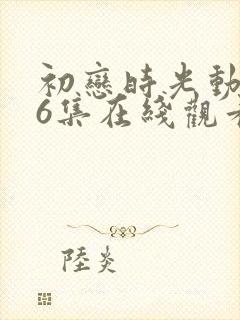 初戀時光動
6集在綫觀
陸炎